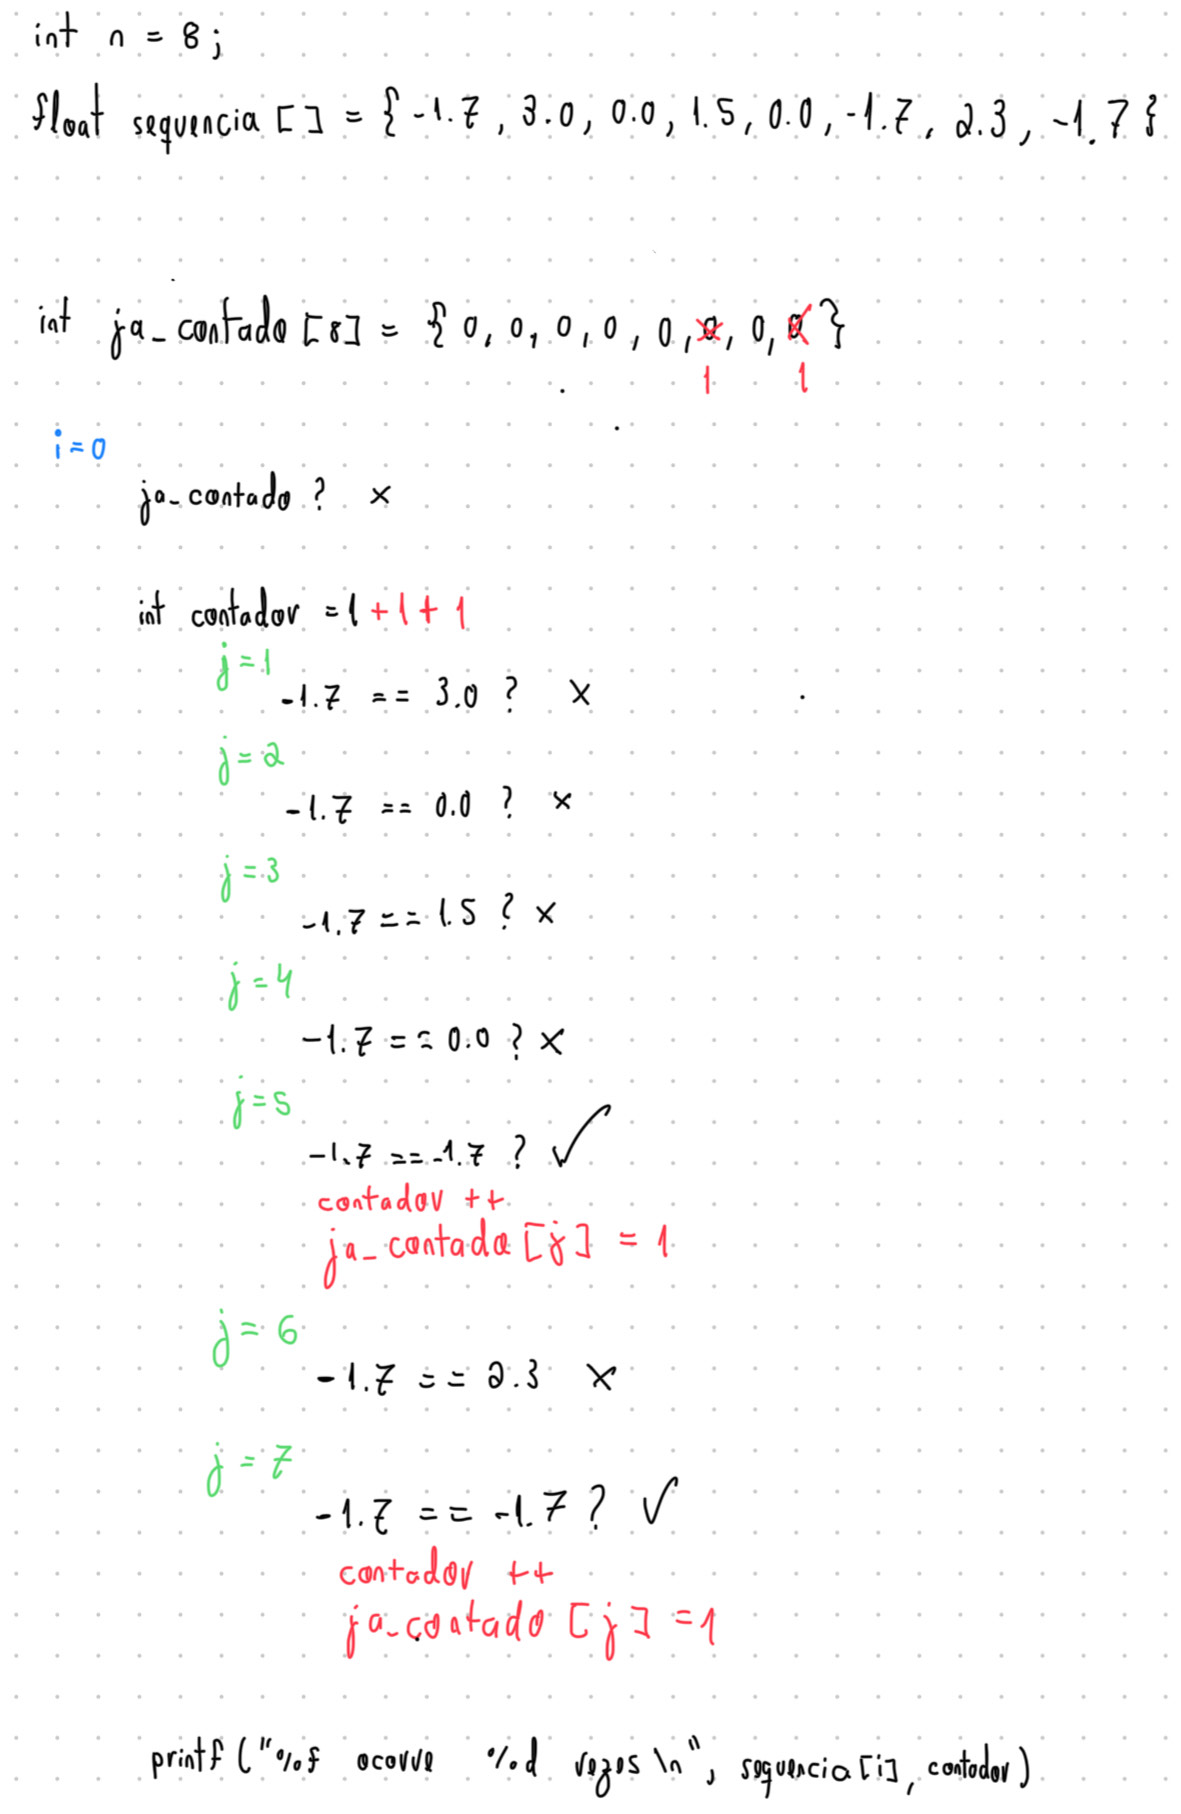 int n = 8;
float sequencia [] = { -1.7, 3.0, 0.0, 1.5, 0.0, -1.7, 2.3, -1.7 }
int ja_contado [8] = { 0, 0, 0, 0, 0, 0, 0, 0 }
1 1
i = 0
ja_contado ? x
int contador = 1 + 1 + 1
j = 1
-1.7 == 3.0 ? x
j = 2
-1.7 == 0.0 ? x
j = 3
-1.7 == 1.5 ? x
j = 4
-1.7 == 0.0 ? x
j = 5
-1.7 == -1.7 ? ✓
contador ++
ja_contado [j] = 1
j = 6
-1.7 == 2.3 x
j = 7
-1.7 == -1.7 ? ✓
contador ++
ja_contado [j] = 1
printf ("%f ocorre %d vezes \n", sequencia [i], contador)